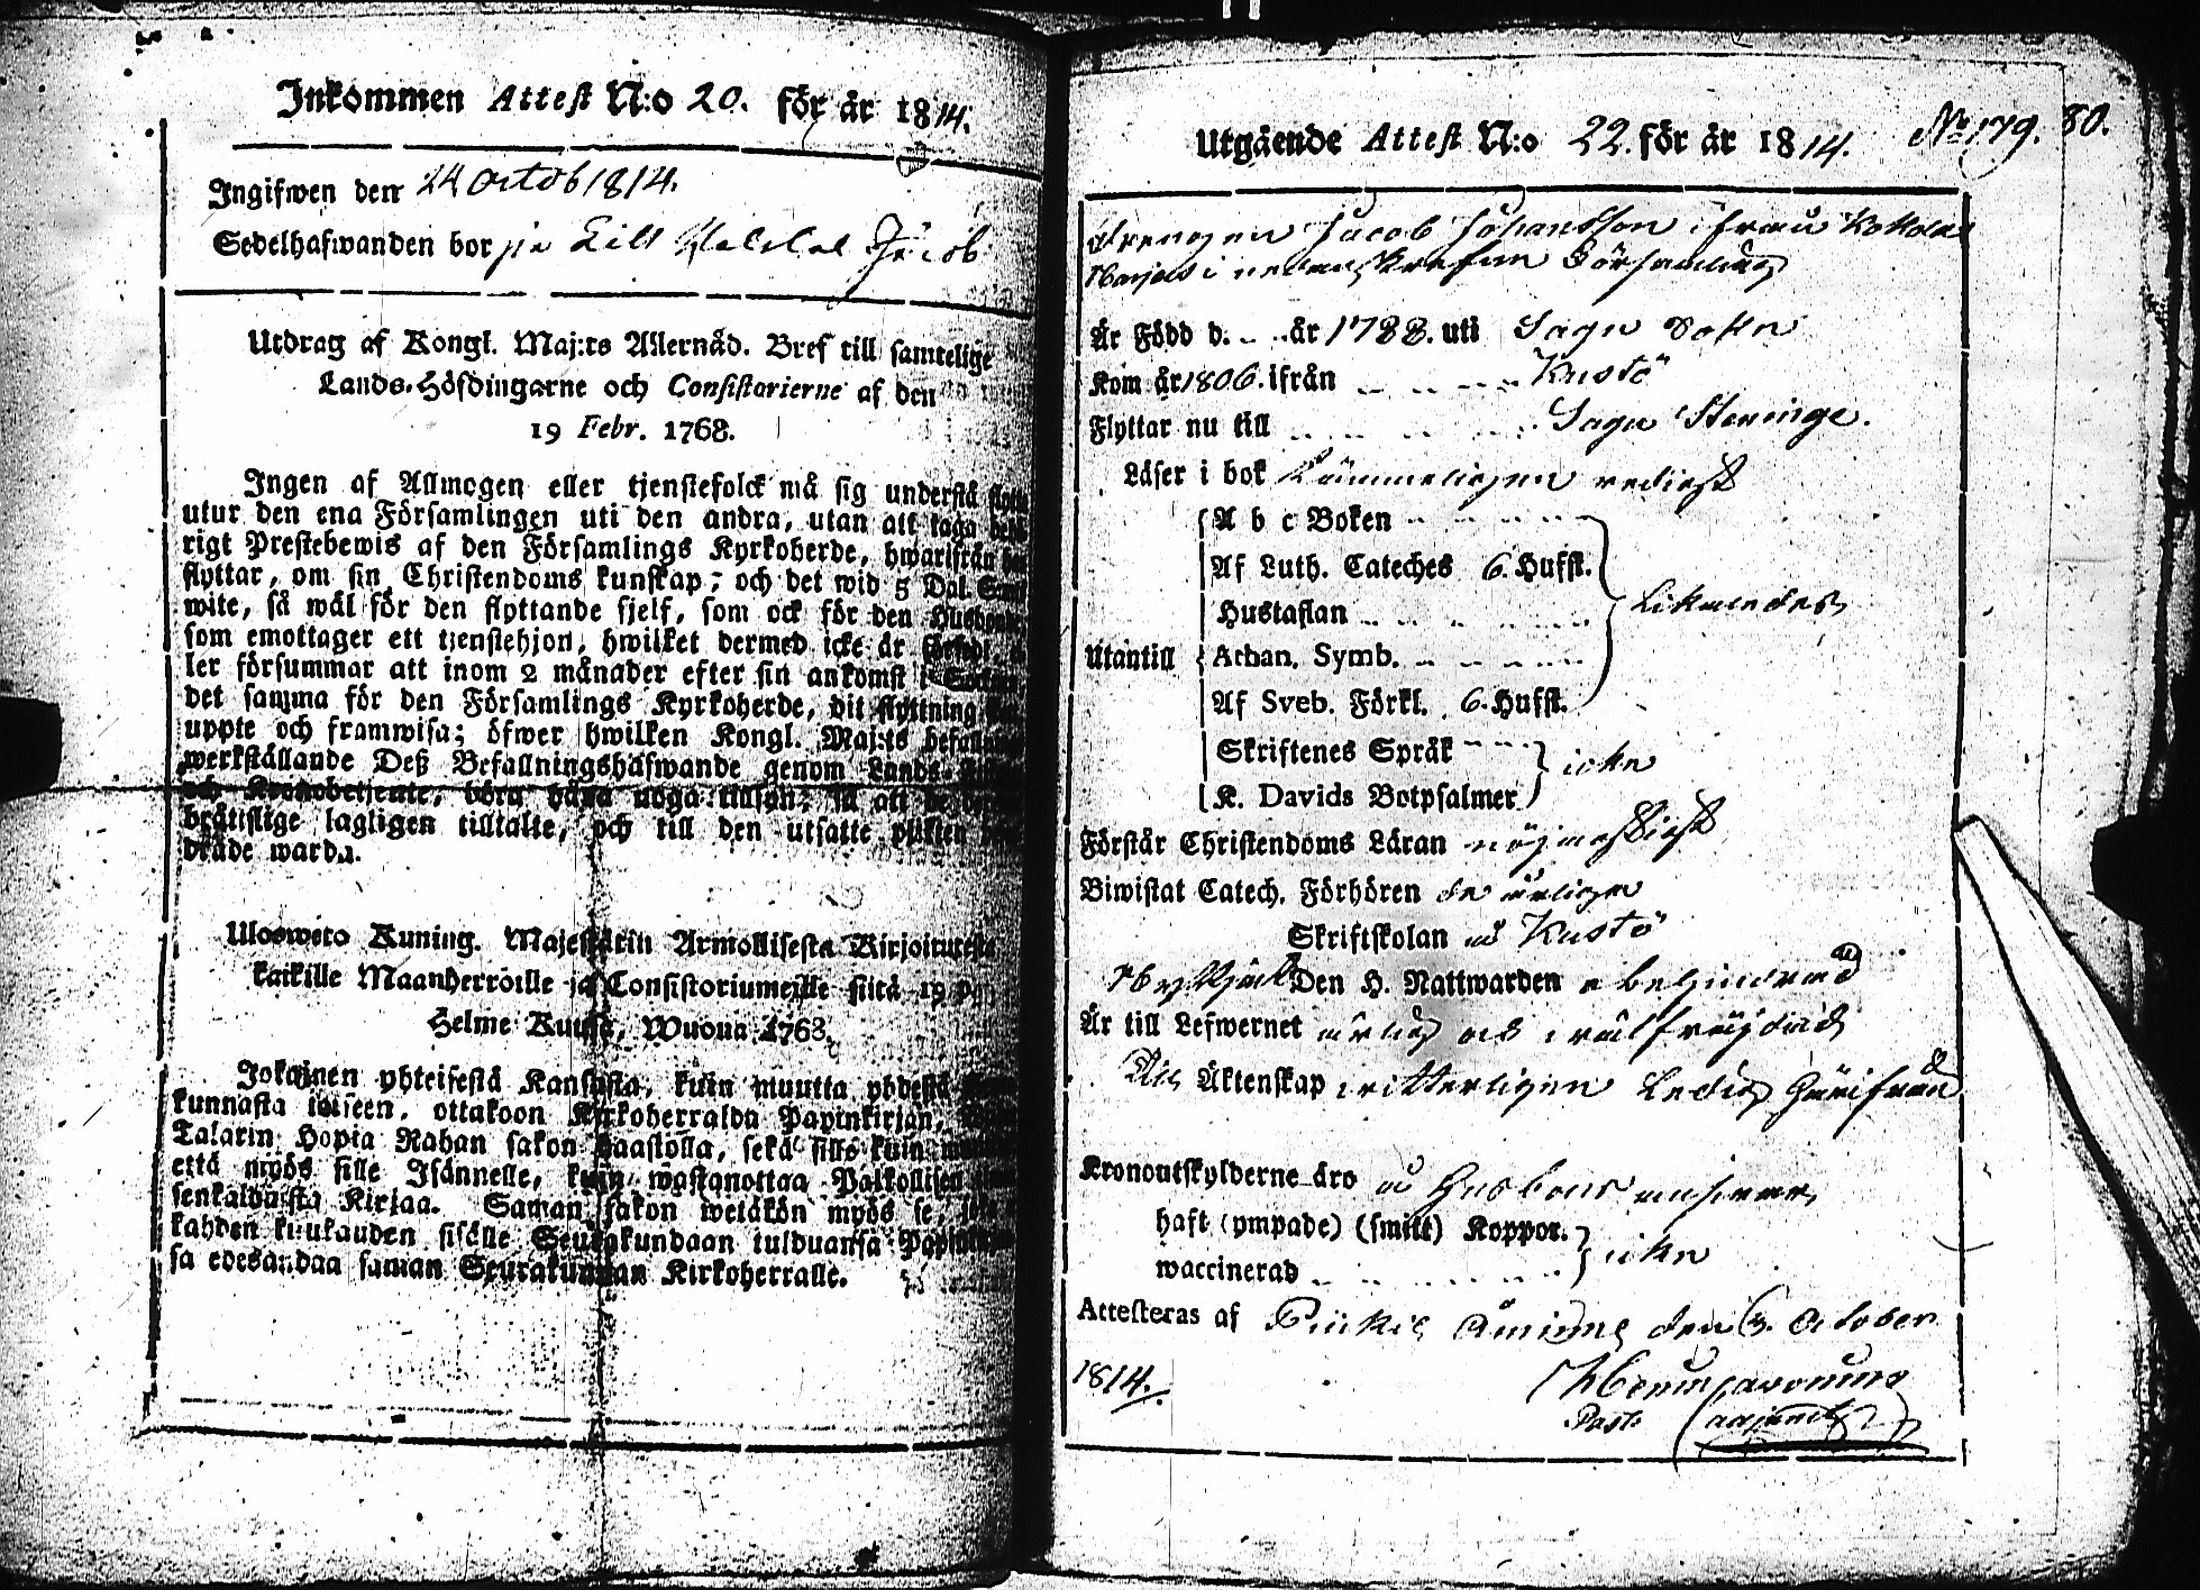 Inkommen Attest N:o 20. för år 1814.
Ingifwen den 24 Octob 1814.
Sedelhafwanden bor på Lill Jacob
Utdrag af Kongl. Maj:ts Allernåd. Bref till samtelige
Lands-Höfdingarne och Consistorierne af den
19 Febr. 1768.
Ingen af Allmogen eller tjenstefolck må sig understå flytta
utur den ena Församlingen uti den andra, utan att taga behö-
rigt Prestebewis af den Församlings Kyrkoherde, hwarifrån han
flyttar, om sin Christendoms kunskap; och det wid 5 Dal. Smt
wite, så wäl för den flyttande sjelf, som ock för den Husbonde,
som emottager ett tjenstehjon, hwilket dermed icke är försedt, el-
ler försummar att inom 2 månader efter sin ankomst i Socknen
det samma för den Församlings Kyrkoherde, dit flyttning
uppte och framwisa; öfwer hwilken Kongl. Maj:ts befallning
werkställande Deß Befallningshafwande genom Lands-
och Kronobetjente, böra hafwa noga tillsyn, så att de
brättslige lagligen tilltalte, och till den utsatte plikten
drade warda.
Ulosweto Kuning. Majestätin Armollisesta Kirjoituxesta
kaikille Maanherroille ja Consistoriumeille siitä 19 p.
Helme Kuusa, Wuona 1768.
Jokainen yhteisestä Kansasta, kuin muutta yhdestä
kunnasta toiseen, ottakoon Kirkoherralda Papinkirjan,
Talarin Hopia Rahan sakon haastolla, sekä sille kuin
että myös sille Isännelle, kuin wastanottaa Palkollisen
senkaldaista Kirjaa. Saman sakon wetäkön myös se, joka
kahden kuukauden sisälle Seurakundaan tulduansa Papin
sa edesandaa saman Seurakunnan Kirkoherralle.
Utgående Attest N:o 22. för år 1814. No 179. 80.
Drengen Jacob Johansson ifrån Kokola
i nedanskrefne Församling
Är Född d. .. .. år 1788. uti Sagu Sokn
Kom år 1806. ifrån Kustö
Flyttar nu till Sagu Steninge.
Läser i bok redigt
A b c Boken
Af Luth. Cateches 6. Hufst.
Hustaflan Likaledes
Utantill Athan. Symb.
Af Sveb. Förkl. 6. Hufst.
Skriftenes Språk
icke
K. Davids Botpsalmer
Förstår Christendoms Läran nöjagtigt
Biwistat Catech. Förhören årligen
Skriftskolan i Kustö
Den H. Nattwarden obehindrad
Är till Lefwernet ärlig och wälfräjdad
Till Äktenskap witterligen Ledig härifrån
Kronoutskylderne äro å Husbondens answar
haft (ympade) (smitt) Koppor.
icke
waccinerad
Attesteras af Piikkis den 3. October
1814.
Past. adjunct